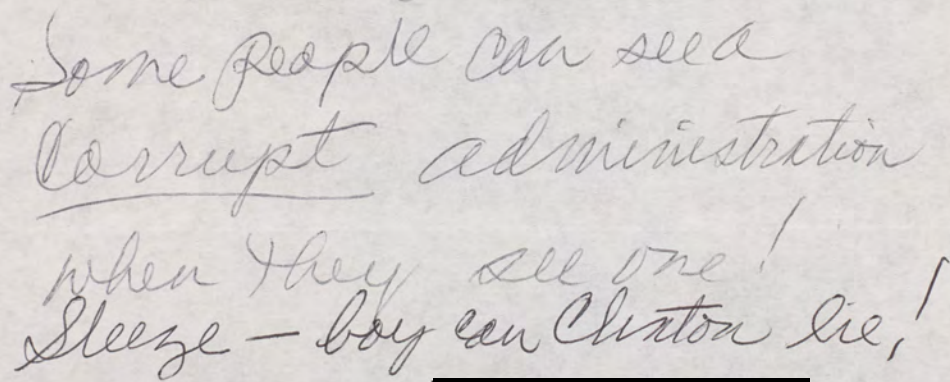 Some people can see a
Corrupt administration
when they see one!
Sleeze – boy can Clinton lie!